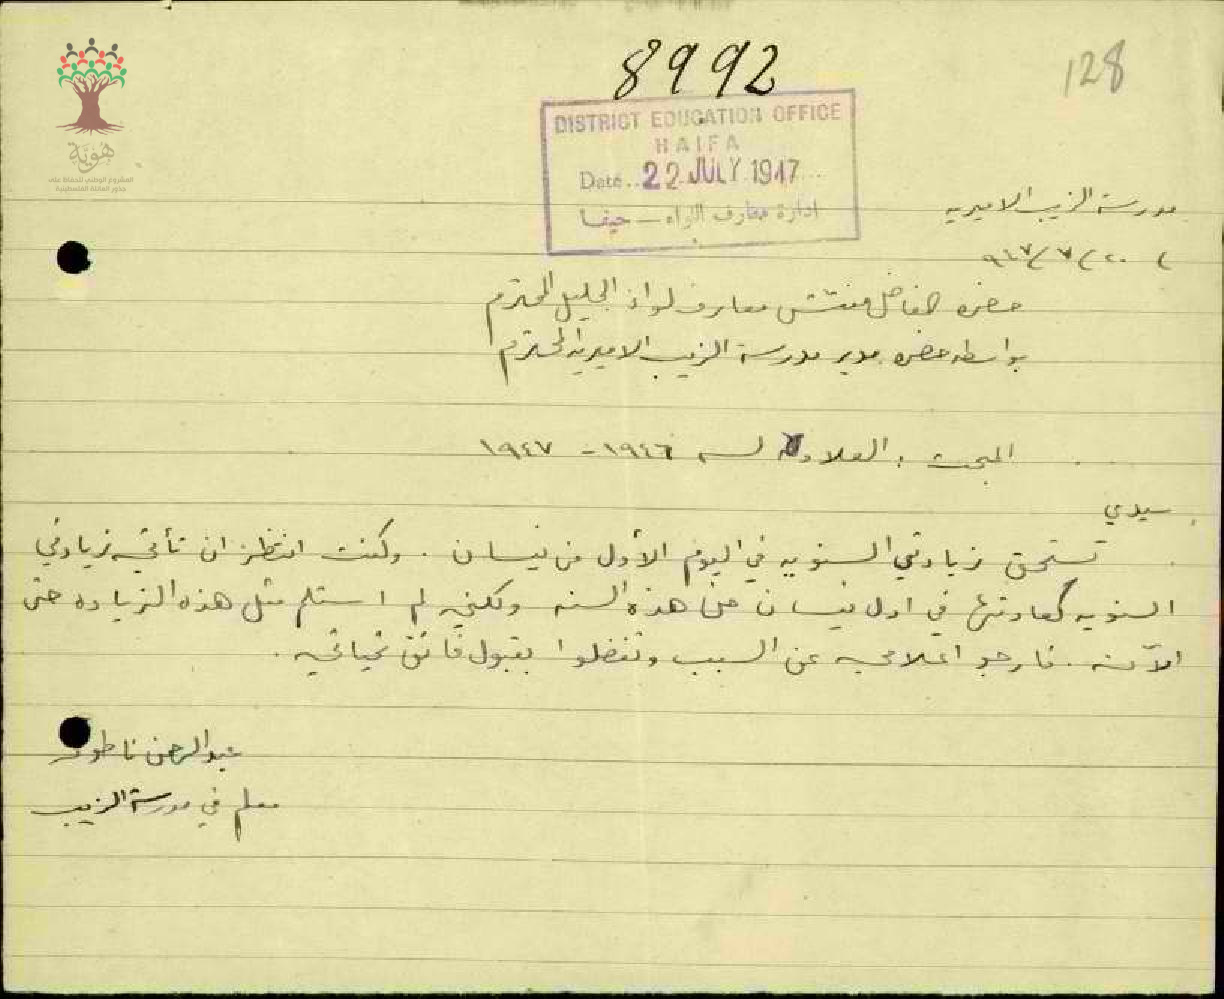 8992
128
DISTRICT EDUCATION OFFICE
HAIFA
Date.. 22 JULY 1947...
ادارة معارف اللواء — حيفا
هوية
المشروع الوطني للحفاظ على
جذور العائلة الفلسطينية
مدرسة الزيب الاميريه
٢٠/٧/٩٤٧
حضرة الفاضل مفتش معارف لواء الجليل المحترم
بواسطة حضرة مدير مدرسة الزيب الاميريه المحترم
المبحث : العلاوة لسنه ١٩٤٦ - ١٩٤٧
سيدي
تستحق زيادتي السنويه في اليوم الأول من نيسان . وكنت انتظر ان تأتي زيادتي
السنويه كعادتها في اول نيسان من هذه السنه ولكني لم استلم مثل هذه الزياده حتى
الآن . فارجو اعلامي عن السبب وتفضلوا بقبول فائق تحياتي .
عبد الرحمن ناطور
معلم في مدرسة الزيب